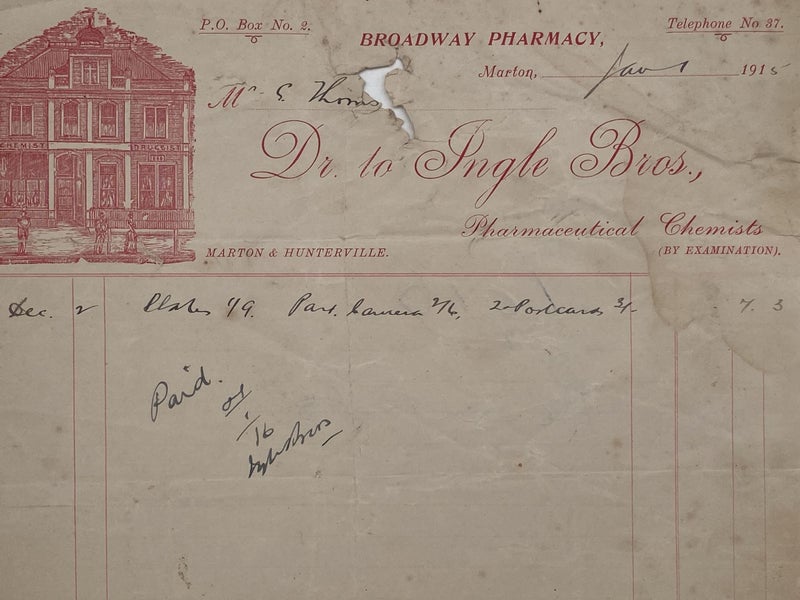 P.O. Box No. 2.
BROADWAY PHARMACY,
Telephone No 37.
Marton, Jan 1 1915
Mr G. Thoms
Dr. to Ingle Bros.,
Pharmaceutical Chemists
(BY EXAMINATION).
MARTON & HUNTERVILLE.
CHEMIST DRUGGIST
Dec. 2 Plates 1/9. Part. Camera 2/6, 2 Postcards 3/- 7. 3
Paid.